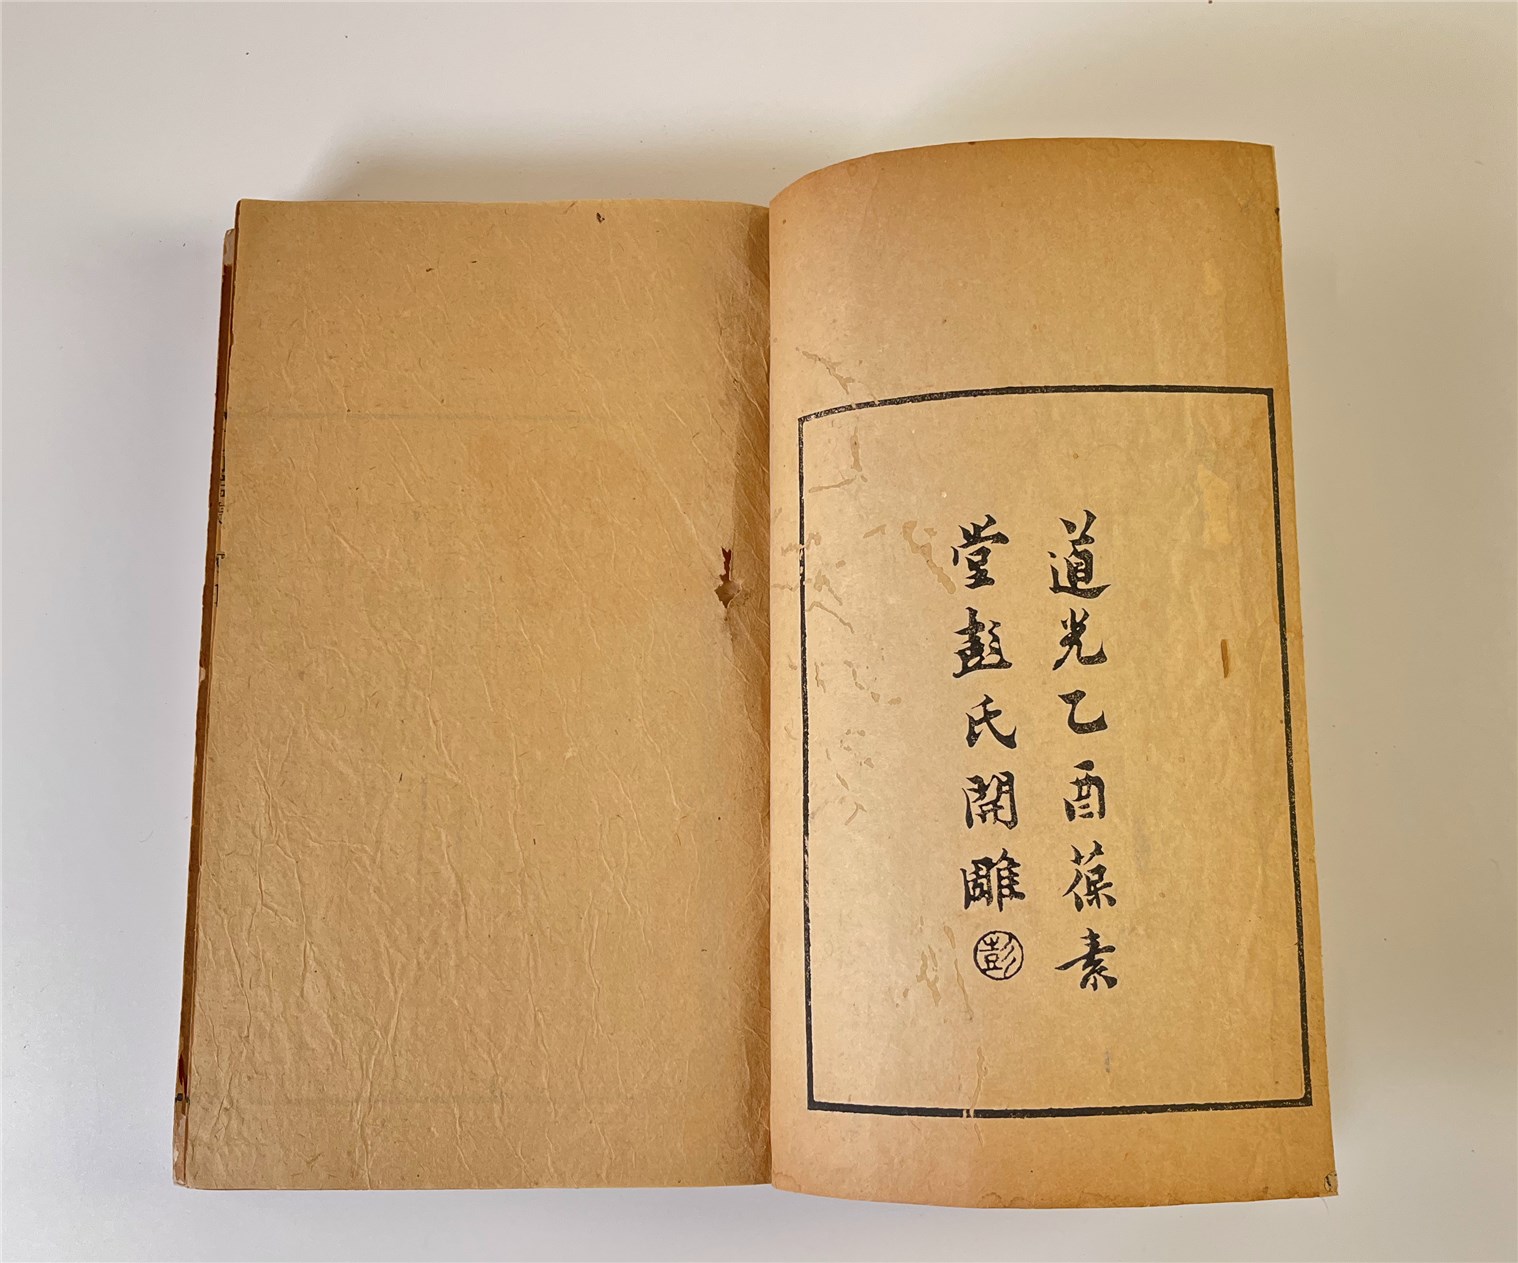 道光乙酉葆素
堂彭氏開雕
彭